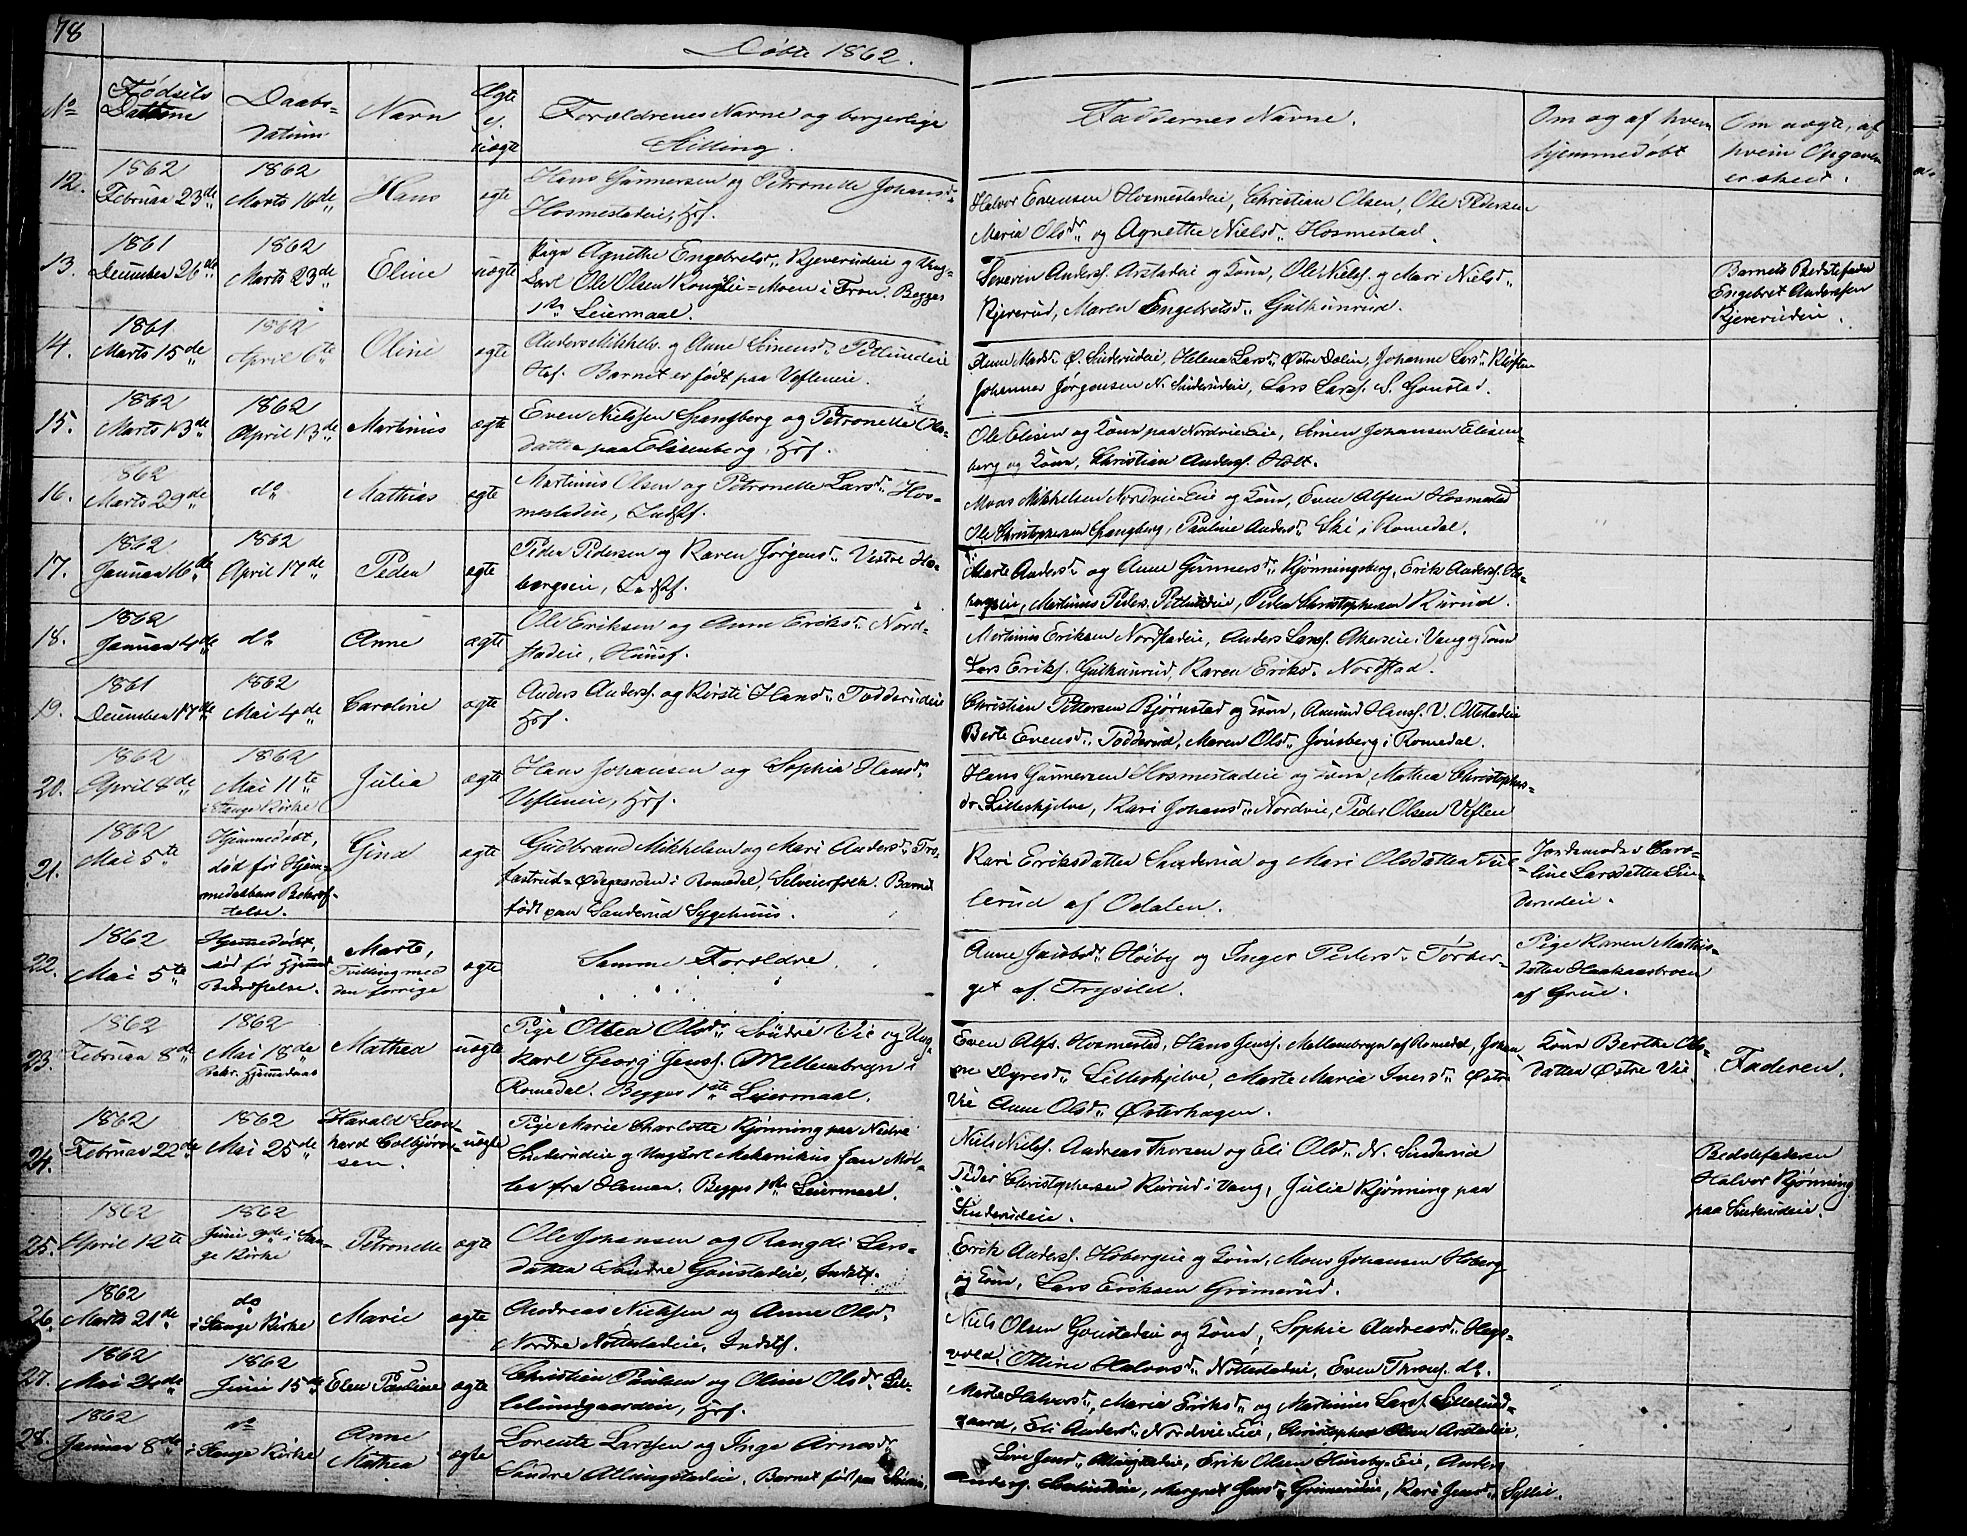 78
Døbte 1862.
No
Fødsels
Dattum
Daabs-
datum
Navn
Ægte
el.
uægte
Forældrenes Navne og borgerlige
Stilling.
Faddernes Navne.
Om og af hvem
hjemmedøbt
Om uægte, af
hvem Opgaven
er skeet.
12.
1862
Februar 23de
1862
Marts 16de
Hans
ægte
Hans Gunnersen og Petronelle Johansd.
Hosmestadeie, Hsf.
Halvor Evensen Hosmestadeie, Christian Olsen, Ole Pedersen
Maria Olsd. og Agnethe Nielsd. Hosmestad.
13.
1861
December 26de
1862
Marts 23de
Eline
uægte
Pige Agnethe Engebretsd. Kjeverudeie og Ung-
karl Ole Olsen Konglie-Moen i Fron. Begges
1ste Leiermaal.
Severin Anders. Arstadeie og Kone, Ole Niels. og Mari Nielsd.
Kjeverud, Maren Engebretsd. Guthunrud.
Barnets Bedstefader
Engebret Anderssen
Kjeverudeie.
14.
1861
Marts 15de
1862
April 6te
Oline
ægte
Anders Mikkels. og Anne Simensd. Petlundeie
Hsf. Barnet er født paa Vefleneie.
Anne Madsd. Ø. Sinderudeie, Helena Larsd. Østre Dalen, Johanne Larsd. Kløften
Johannes Jørgensen N. Sinderudeie, Lars Larss. S. Gonstad.
15.
1862
Marts 13de
1862
April 13de
Martinus
ægte
Even Nielssen Spangberg og Petronelle Ols-
datter paa Elisenberg, Hsf.
Ole Elisen og Kone paa Nordvie Eie, Simen Johansen Elisen-
berg og Kone, Christian Anders. Holt.
16.
1862
Marts 29de
do
Mathias
ægte
Martinus Olsen og Petronelle Larsd. Hos-
mestadeie, Indstf.
Moses Mikkelsen Nordvie-Eie og Kone, Even Alfsen Hosmestad
Ole Christophersen Spangberg, Pauline Andersd. Ski i Romedal.
17.
1862
Januar 16de
1862
April 17de
Peder
ægte
Peder Pedersen og Karen Jørgensd. Vestre Ho-
bergseie, Indstf.
Marte Andersd. og Anne Gunnersd. Kjønningsberg, Erik Anders. Ho-
bergseie, Martinus Peders. Petlundeie, Peder Christophersen Rurud.
18.
1862
Januar 4de
do
Anne
ægte
Ole Eriksen og Anne Eriksd. Nord-
stadeie, Huusf.
Martinus Eriksen Nordstadeie, Anders Larss. Akerseie i Vang og Kone
Lars Eriks. Guthunrud, Karen Eriksd. Nordstad.
19.
1861
December 17de
1862
Mai 4de
Caroline
ægte
Anders Anders. og Kirsti Hansd. Todderudeie
Hsf.
Christian Pettersen Bjørnstad og Kone, Amund Hans. V. Ottestadeie
Berte Evensd. Todderud, Maren Olsd. Jønsberg i Romedal.
20.
1862
April 8de
1862
Mai 11te
i Stange Kirke
Julia
ægte
Hans Johansen og Sophia Hansd.
Vefleneie, Hsf.
Hans Gunnersen Hosmestadeie og Kone, Mathea Christophers-
dr. Lilleskjelve, Kari Johansd. Nordvie, Peder Olsen Veflen
21.
1862
Mai 5te
Hjemmedøbt,
død før Hjem-
medaabens Bekræf-
telse.
Gina
ægte
Gudbrand Mikkelsen og Mari Andersd. Tro-
fastrud-Ødegaarden i Romedal, Selveierfolk. Barnet
født paa Sanderud Sygehuus.
Kari Eriksdatter Sanderud og Mari Olsdatter Tul-
lerud af Odalen.
Jordemoder Caro-
line Larsdatter Sin-
derudeie.
22.
1862
Mai 5te
Hjemmedøbt,
død før Hjemmed.
Bekræftelse.
Marte,
Tvilling med
den forrige
ægte
Samme Forældre.
Anne Jacobsd. Høiby og Inger Pedersd. Tørber-
get af Trysild.
Pige Karen Mathis-
datter Haakaasbroen
af Grue.
23.
1862
Februar 8de
1862
Mai 18de
Bekr. Hjemmedaab
Mathea
uægte
Pige Othea Olsd. Søndre Vie og Ung-
karl Georg Jenss. Mellembryn i
Romedal. Begges 1ste Leiermaal.
Even Alfs. Hosmestad, Hans Jens. Mellembryn af Romedal, Johan-
ne Dyresd. Lilleskjelve, Marte Maria Iversd. Østre
Vie Anne Olsd. Østerhagen.
Kone Berthe Ols-
datter Østre Vie
Faderen.
24.
1862
Februar 22de
1862
Mai 25de
Harald Leon-
hard Colbjørn-
sen.
uægte
Pige Marie Charlotte Kjønning paa Nedre
Sinderudeie og Ungkarl Mekanikus Jan Møl-
ler fra Hamar. Begges 1ste Leiermaal.
Niels Niels. Andreas Thorsen og Eli Olsd. N. Sinderud
Peder Christophersen Rurud i Vang, Julia Kjønning paa
Sinderudeie.
Bedstefaderen
Halvor Kjønning
paa Sinderudeie.
25.
1862
April 12te
1862
Juni 9de i Stan-
ge Kirke
Petronelle
ægte
Ole Johansen og Rangdi Lars-
datter Søndre Gonstadeie, Indstf.
Erik Anders. Hobergeie og Kone, Mons Johansen Hoberg
og Kone, Lars Eriksen Grimerud.
26.
1862
Marts 21de
do
i Stange Kirke
Marie
ægte
Andreas Nielsen og Anne Olsd.
Nordre Nøttestadeie, Indstf.
Niels Olsen Gonstadeie og Kone, Sophie Andreasd. Hegs-
vold, Ottine Halvorsd. Nøttestadeie, Even Thors. do.
27.
1862
Mai 26de
1862
Juni 15de
Elen Pauline
ægte
Christian Paulsen og Oline Olsd. Lil-
lelundgaardeie, Hsf.
Marte Halvorsd., Maria Eriksd. og Martinus Larss. Lillelund-
gaard, Eli Andersd. Nordvie Eie, Christopher Olsen Arstadeie.
28.
1862
Januar 8de
do
i Stange Kirke
Anne
Mathea
ægte
Lorents Larssen og Inge Arnesd.
Søndre Allungstadeie. Barnet født paa
Erik Olsen Huseby Eie, Anders
Margret Jensd. Grimerudeie, Kari Jensd. Syllie.